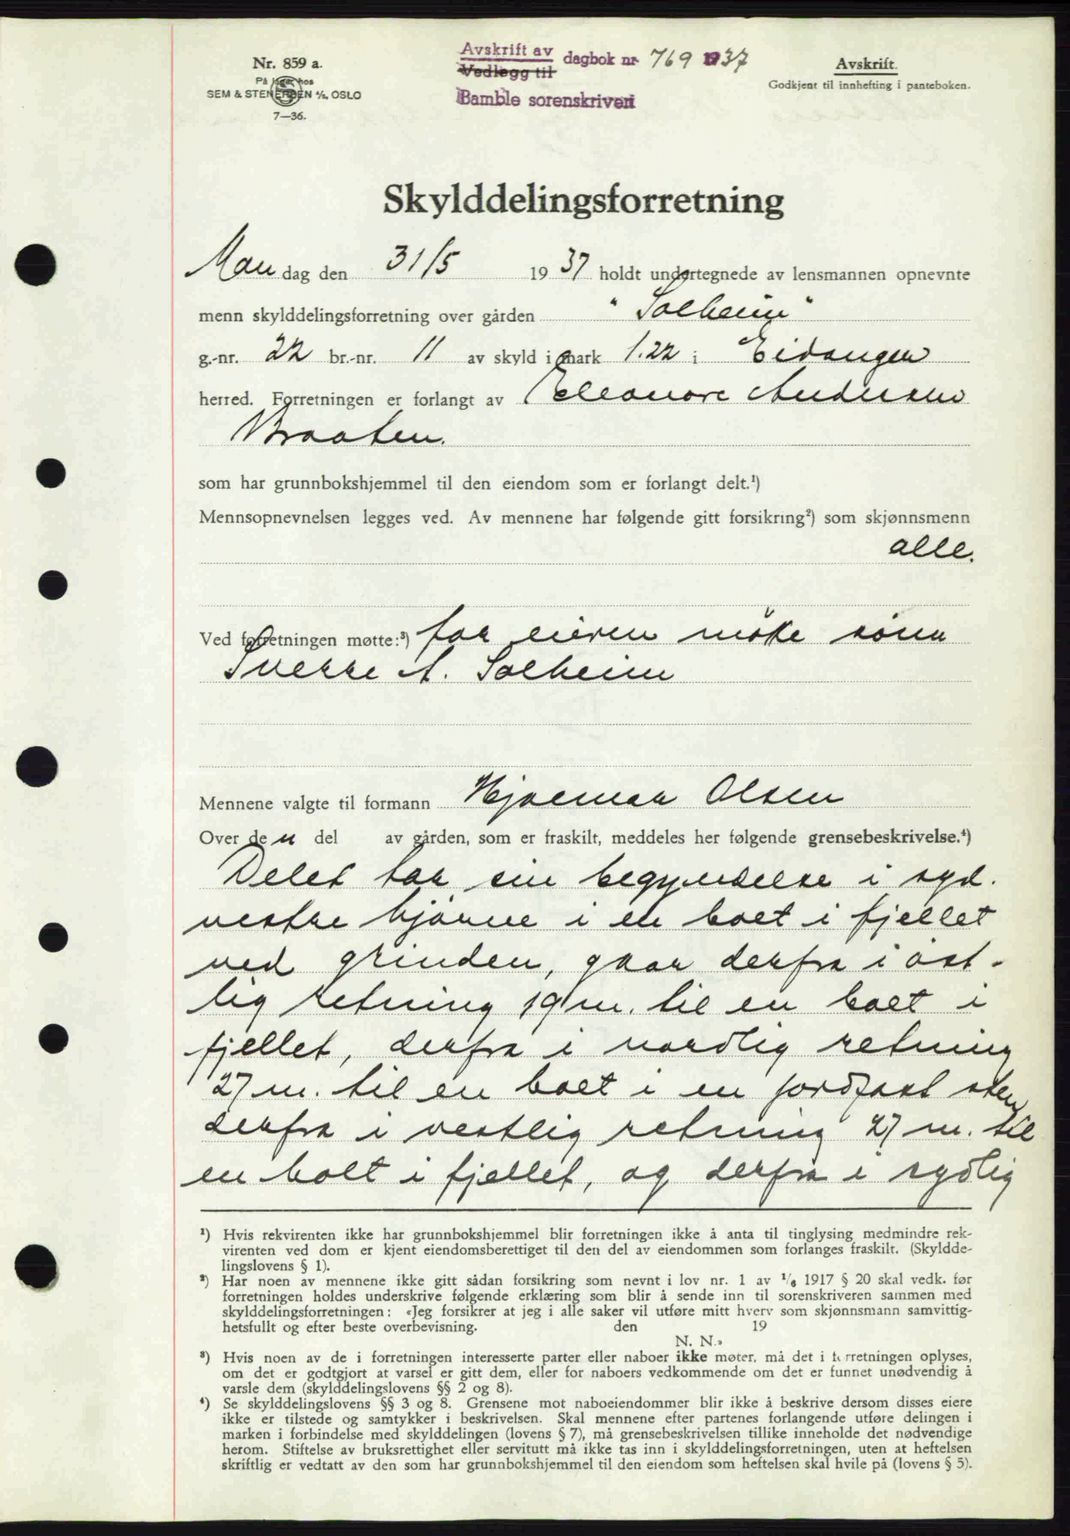 Nr. 859 a.
På lager hos
SEM & STENERSEN A/S, OSLO
7—36.
Avskrift av
Vedlegg til
dagbok nr 769 1937
Bamble sorenskriveri
Avskrift.
Godkjent til innhefting i panteboken.
Skylddelingsforretning
Man dag den 31/5 1937 holdt undertegnede av lensmannen opnevnte
menn skylddelingsforretning over gården "Solheim"
g.-nr. 22 br.-nr. 11 av skyld i mark 1.22 i Eidanger
herred. Forretningen er forlangt av Eleonore Andersen
Braaten.
som har grunnbokshjemmel til den eiendom som er forlangt delt.¹)
Mennsopnevnelsen legges ved. Av mennene har følgende gitt forsikring²) som skjønnsmenn
alle.
Ved forretningen møtte:³) for eieren møtte sønn
Sverre A. Solheim
Mennene valgte til formann Hjalmar Olsen
Over den del av gården, som er fraskilt, meddeles her følgende grensebeskrivelse.⁴)
Delet tar sin begyndelse i syd.
vestre hjørne i en bolt i fjellet
ved grinden, gaar derfra i øst-
lig retning 19 m. til en bolt i
fjellet, derfra i nordlig retning
27 m. til en bolt i en jordfast sten
derfra i vestlig retning 27 m. til
en bolt i fjellet, og derfra i sydlig
¹) Hvis rekvirenten ikke har grunnbokshjemmel blir forretningen ikke å anta til tinglysing medmindre rek-
virenten ved dom er kjent eiendomsberettiget til den del av eiendommen som forlanges fraskilt. (Skyldde-
lingslovens § 1).
²) Har noen av mennene ikke gitt sådan forsikring som nevnt i lov nr. 1 av 1/6 1917 § 20 skal vedk. før
forretningen holdes underskrive følgende erklæring som blir å sende inn til sorenskriveren sammen med
skylddelingsforretningen: «Jeg forsikrer at jeg i alle saker vil utføre mitt hverv som skjønnsmann samvittig-
hetsfullt og efter beste overbevisning. den 19
N. N.»
³) Hvis noen av de i forretningen interesserte parter eller naboer ikke møter, må det i forretningen oplyses,
om det er godtgjort at varsel er gitt dem, eller for naboers vedkommende om det er funnet unødvendig å
varsle dem (skylddelingslovens §§ 2 og 8).
⁴) Se skylddelingslovens §§ 3 og 8. Grensene mot naboeiendommer blir ikke å beskrive dersom disses eiere
ikke er tilstede og samtykker i beskrivelsen. Skal mennene efter partenes forlangende utføre delingen i
marken i forbindelse med skylddelingen (lovens § 7), må grensebeskrivelsen tillike inneholde det nødvendige
herom. Stiftelse av bruksrettighet eller servitutt må ikke tas inn i skylddelingsforretningen, uten at heftelsen
skriftlig er vedtatt av den som har grunnbokshjemmel til den eiendom som heftelsen skal hvile på (lovens § 5).